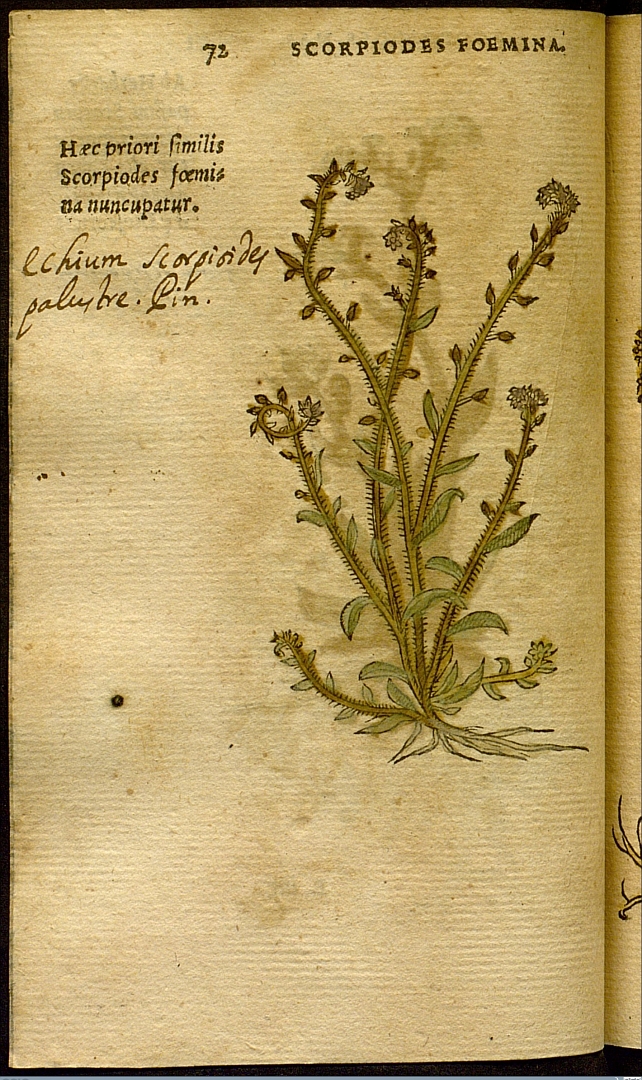 72 SCORPIODES FOEMINA.
Hæc priori similis
Scorpiodes fœmi=
na nuncupatur.
echium scorpioides
palustre. Pin.